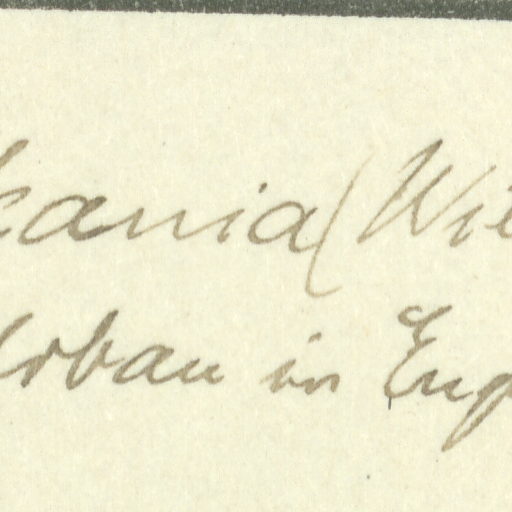 kania (Wil
rbau in Eng